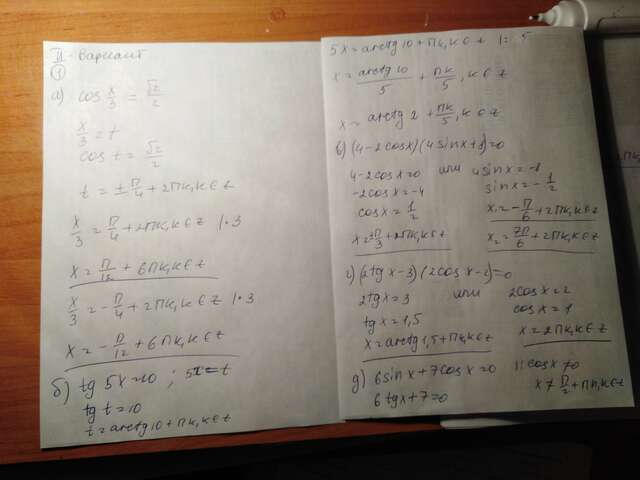 II - вариант
①
а) cos x/3 = √2/2
x/3 = t
cos t = √2/2
t = ± π/4 + 2πk, k ∈ z
x/3 = π/4 + 2πk, k ∈ z |·3
x = π/12 + 6πk, k ∈ z
x/3 = - π/4 + 2πk, k ∈ z |·3
x = - π/12 + 6πk, k ∈ z
б) tg 5x = 10 ; 5x = t
tg t = 10
t = arctg 10 + πk, k ∈ z
5x = arctg 10 + πk, k ∈ z |: 5
x = arctg 10/5 + πk/5, k ∈ z
x = arctg 2 + πk/5, k ∈ z
в) (4-2cosx)(4sinx+8)=0
4-2cosx=0 или 4sinx=-8
-2cosx=-4 sinx=-1/2
cosx=1/2 x₁=-π/6+2πk, k∈z
x=±π/3+2πk, k∈z x₂=7π/6+2πk, k∈z
г) (2tgx-3)(2cosx-2)=0
2tgx=3 или 2cosx=2
tgx=1,5 cosx=1
x=arctg1,5+πk, k∈z x=2πk, k∈z
д) 6sinx+7cosx=0 |:cosx≠0
6tgx+7=0 x≠π/2+πn, k∈z